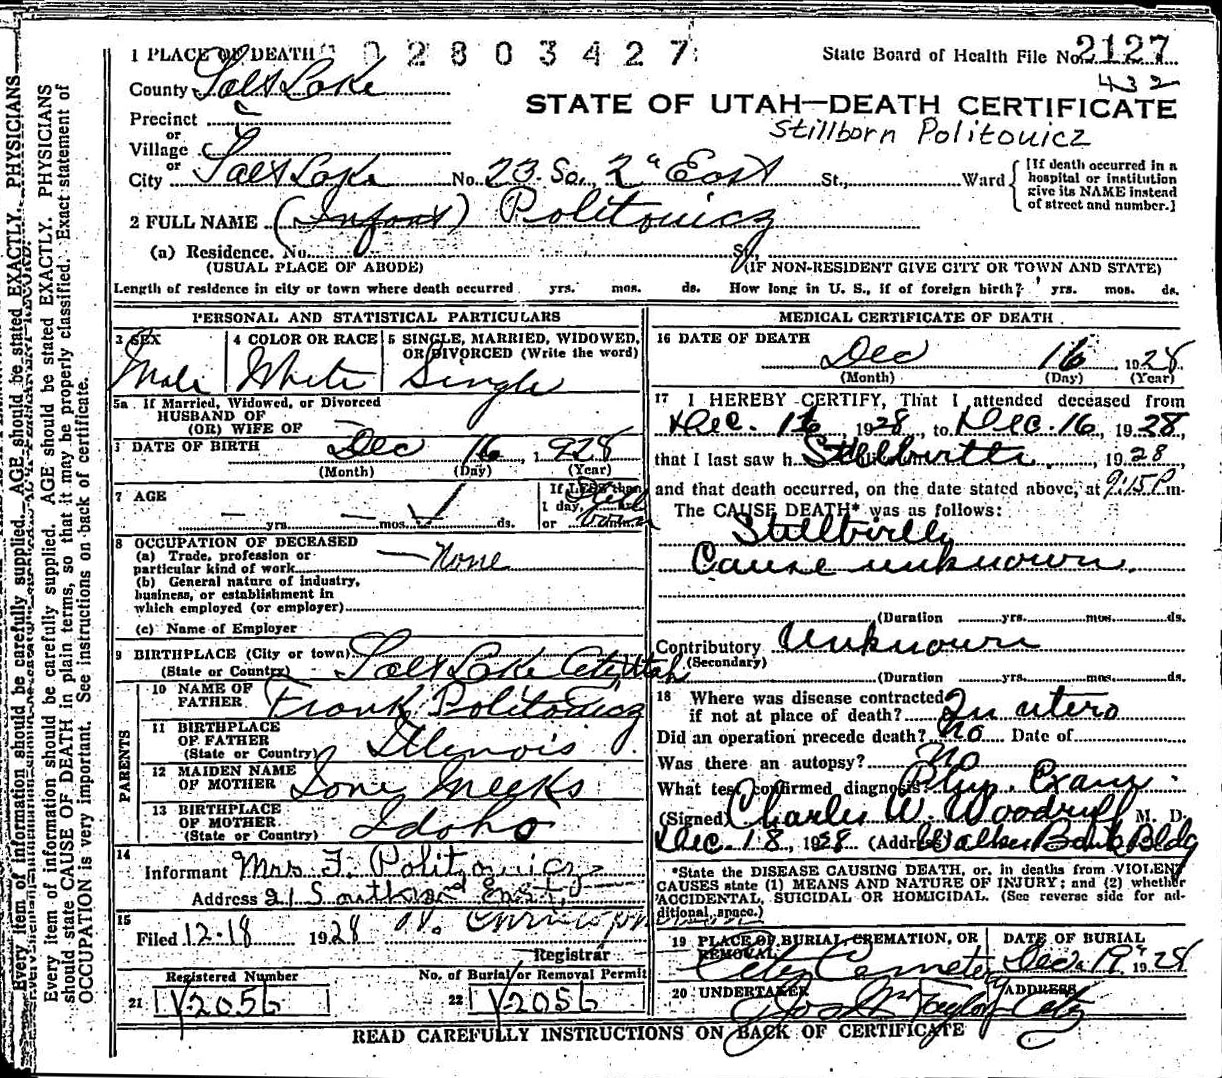 1 PLACE OF DEATH 02803427 State Board of Health File No. 2127
County Salt Lake 432
STATE OF UTAH—DEATH CERTIFICATE
Precinct
or
Stillborn Politowicz
Village
or
City Salt Lake No. 23 So. 2d East St., Ward [If death occurred in a hospital or institution give its NAME instead of street and number.]
2 FULL NAME (Infant) Politowicz
(a) Residence. No. St.,
(USUAL PLACE OF ABODE) (IF NON-RESIDENT GIVE CITY OR TOWN AND STATE)
Length of residence in city or town where death occurred yrs. mos. ds. How long in U. S., if of foreign birth? yrs. mos. ds.
PERSONAL AND STATISTICAL PARTICULARS
3 SEX 4 COLOR OR RACE 5 SINGLE, MARRIED, WIDOWED,
OR DIVORCED (Write the word)
Male White Single
5a If Married, Widowed, or Divorced
HUSBAND OF
(OR) WIFE OF
DATE OF BIRTH Dec 16, 1928
(Month) (Day) (Year)
7 AGE If LESS than
1 day, Still
— yrs. — mos. ds. or born
8 OCCUPATION OF DECEASED
(a) Trade, profession or
particular kind of work None
(b) General nature of industry,
business, or establishment in
which employed (or employer)
(c) Name of Employer
9 BIRTHPLACE (City or town)
(State or Country) Salt Lake City, Utah
PARENTS
10 NAME OF
FATHER Frank Politowicz
11 BIRTHPLACE
OF FATHER
(State or Country) Illinois
12 MAIDEN NAME
OF MOTHER Ione Meeks
13 BIRTHPLACE
OF MOTHER
(State or Country) Idaho
14
Informant Mrs F. Politowicz
Address 21 South 2nd East
15
Filed 12-18 1928
Registrar
Registered Number No. of Burial or Removal Permit
21 V-2056 22 V-2056
MEDICAL CERTIFICATE OF DEATH
16 DATE OF DEATH
Dec 16, 1928
(Month) (Day) (Year)
17 I HEREBY CERTIFY, That I attended deceased from
Dec. 16, 1928, to Dec. 16, 1928,
that I last saw h Stillbirth, 1928
and that death occurred, on the date stated above, at 9:15 P.m.
The CAUSE DEATH* was as follows:
Stillbirth
Cause unknown.
(Duration yrs. mos. ds.
Contributory Unknown
(Secondary)
(Duration yrs. mos. ds.
18 Where was disease contracted
if not at place of death? In utero
Did an operation precede death? No Date of
Was there an autopsy? No
What test confirmed diagnosis? Phys. Exam.
(Signed) Charles W. Woodruff M. D.
Dec. 18, 1928 (Address) Walker Bank Bldg
*State the DISEASE CAUSING DEATH, or, in deaths from VIOLENT
CAUSES state (1) MEANS AND NATURE OF INJURY; and (2) whether
ACCIDENTAL, SUICIDAL OR HOMICIDAL. (See reverse side for ad-
ditional space.)
19 PLACE OF BURIAL, CREMATION, OR DATE OF BURIAL
REMOVAL
City Cemetery Dec. 19 1928
20 UNDERTAKER ADDRESS
Jos. Wm Taylor City
READ CAREFULLY INSTRUCTIONS ON BACK OF CERTIFICATE
Every item of information should be carefully supplied. AGE should be stated EXACTLY. PHYSICIANS
Every item of information should be carefully supplied. AGE should be stated EXACTLY. PHYSICIANS
should state CAUSE OF DEATH in plain terms, so that it may be properly classified. Exact statement of
OCCUPATION is very important. See instructions on back of certificate.